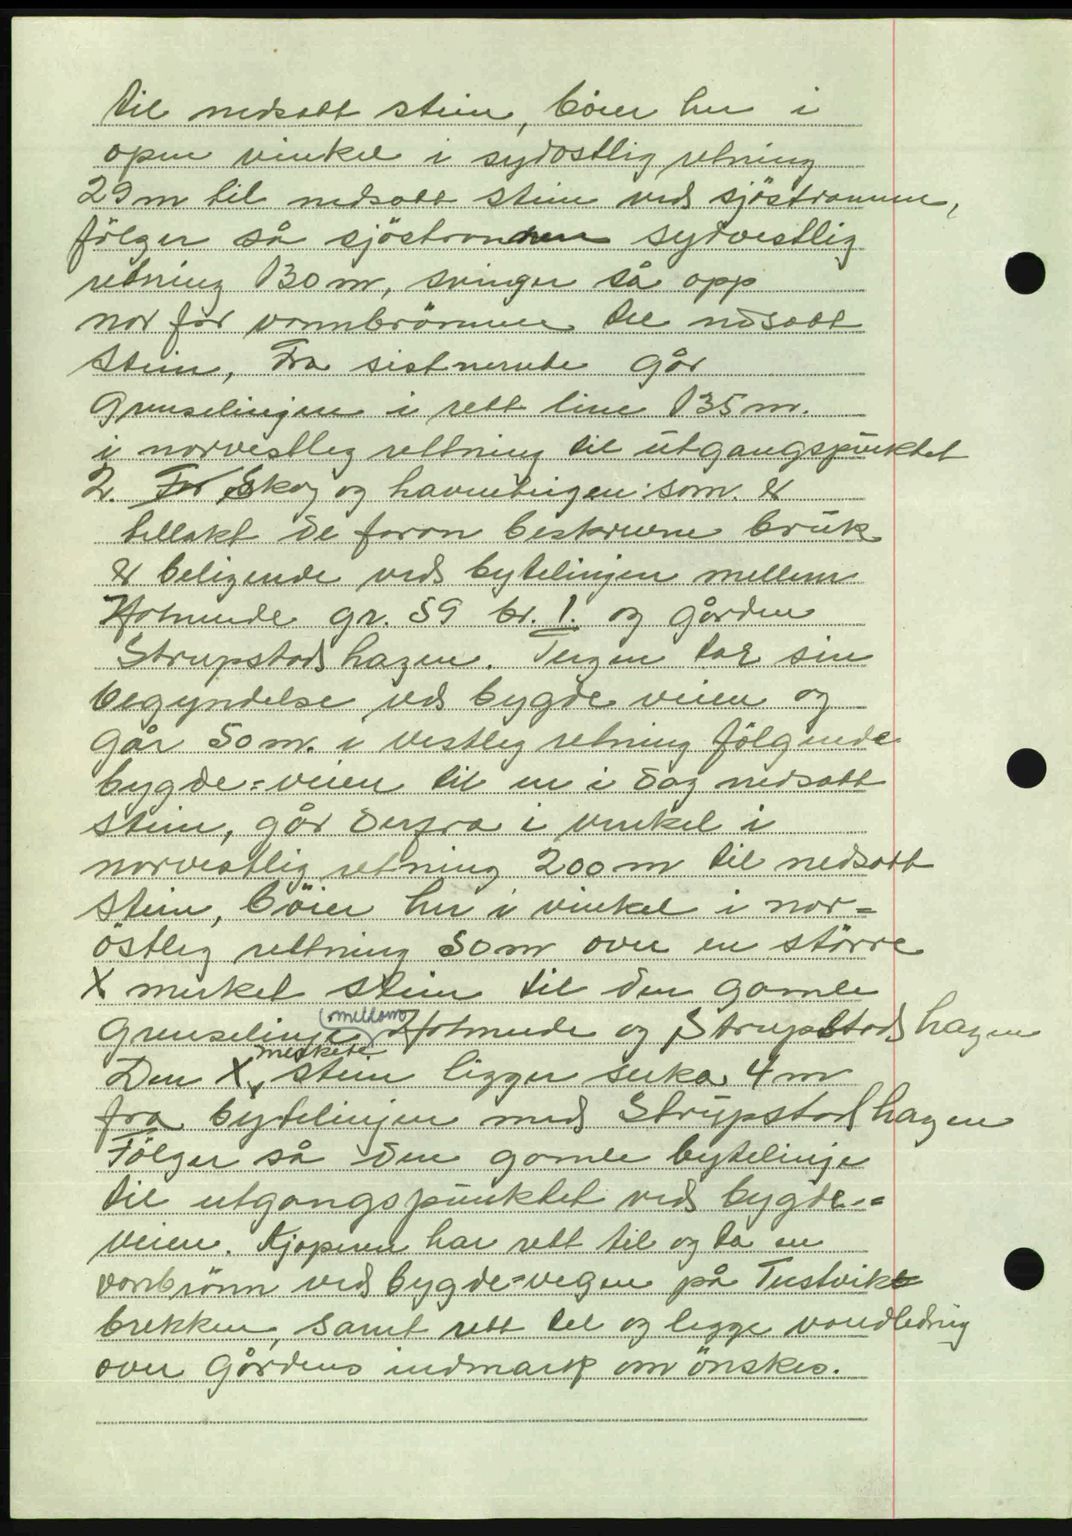 til nedsatt stein, böier her i
open vinkel i sydostlig retning
29 m til nedsatt stein ved sjöstrannen,
fölger så sjöstrannen sydvestlig
retning 130 m, svinger så opp
nor for vannbrönnen til nedsatt
stein, Fra sistnevnte går
grenselinjen i rett line 135 m.
i norvestleg rettning til utgangspunktet
2. For Skog og havneteigen som er
tillakt de foran beskrevne bruk
er beligende ved bytelinjen mellem
Hotnende gr. 59 br. 1. og gården
Strupstadhagen. Teigen tar sin
begyndelse ved bygdeveien og
går 50 m. i vestleg retning fölgende
bygde=veien til en i dag nedsatt
stein, går derfra i vinkel i
norvestlig retning 200 m til nedsatt
stein, böier her i vinkel i nor=
östleg rettning 50 m over en större
X merket stein til den gamle
grenselinje mellom Hotnende og Strupstadshagen
Den X merkete stein ligger serka 4 m
fra bytelinjen med Strupstadhagen
Fölger så den gamle bytelinje
til utgangspunktet ved bygde=
veien. Kjøperen har rett til og ta en
vanbrönn ved bygde=vegen på Tustvik
brekken, samt rett til og legge vandledning
over gårdens indmark om önskes.